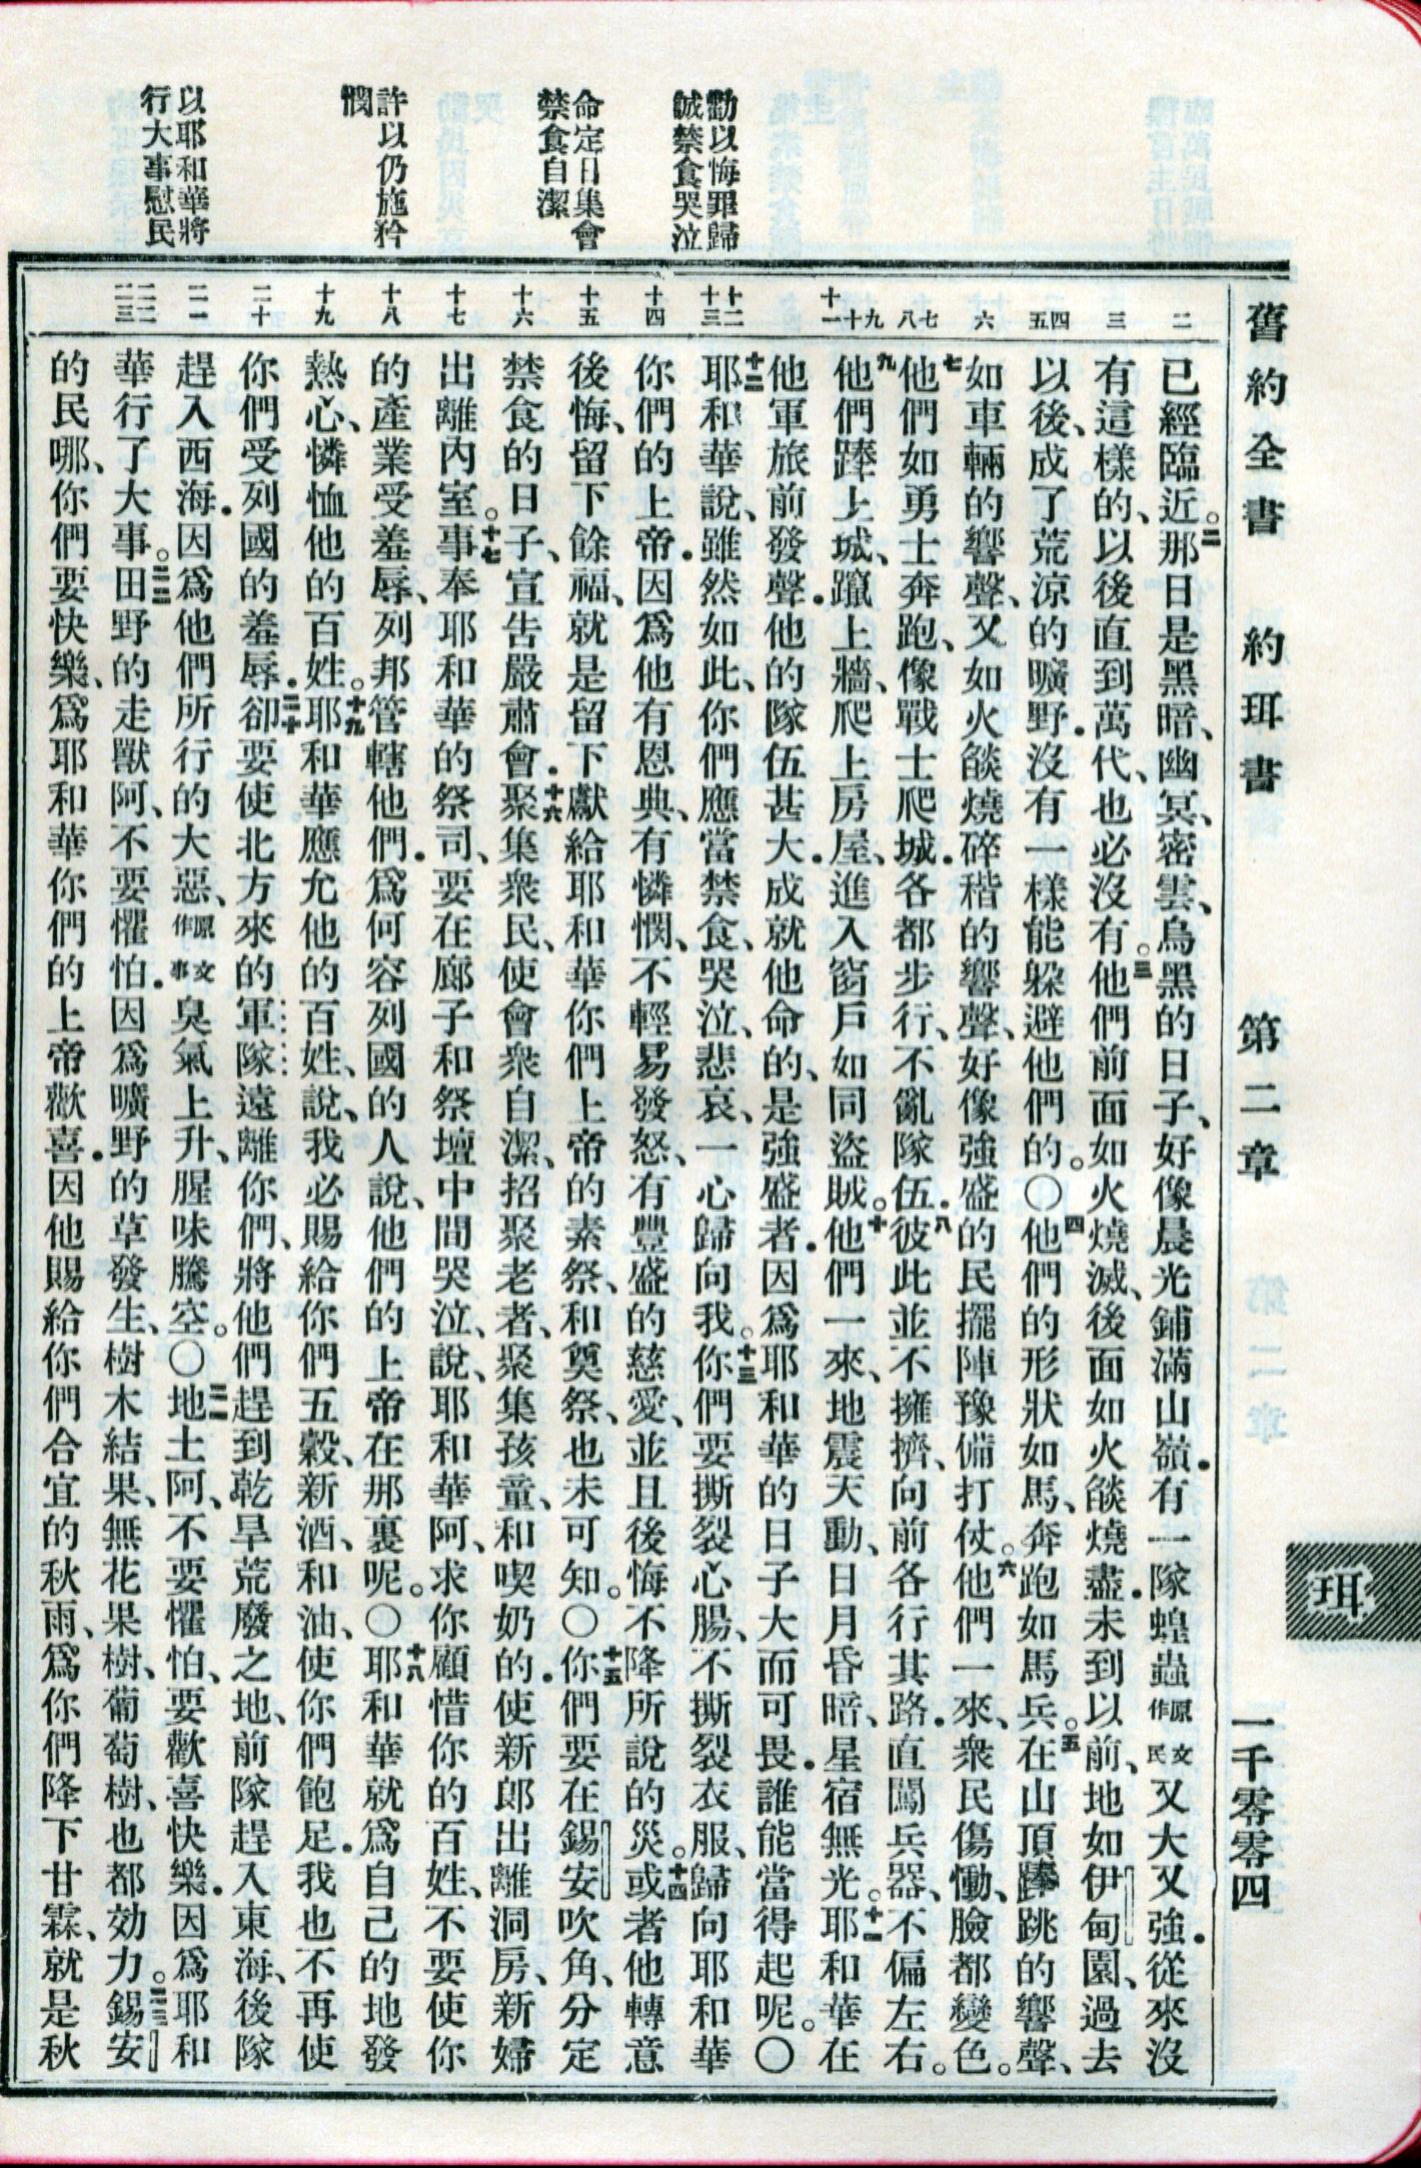 舊約全書 約珥書 第二章 一千零零四
珥
勸以悔罪歸
誠禁食哭泣
命定日集會
禁食自潔
許以仍施矜
憫
以耶和華將
行大事慰民
二
三
四 五
六
七 八
九 十 十一
十二 十三
十四
十五
十六
十七
十八
十九
二十
二一
二二 二三
已經臨近。二那日是黑暗、幽冥、密雲、烏黑的日子、好像晨光鋪滿山嶺．有一隊蝗蟲原文作民又大又強．從來沒
有這樣的、以後直到萬代、也必沒有。三他們前面如火燒滅、後面如火燄燒盡．未到以前、地如伊甸園、過去
以後、成了荒涼的曠野．沒有一樣能躲避他們的。〇四他們的形狀如馬、奔跑如馬兵。五在山頂蹕跳的響聲、
如車輛的響聲、又如火燄燒碎稭的響聲、好像強盛的民擺陣豫備打仗。六他們一來、衆民傷慟、臉都變色。
七他們如勇士奔跑、像戰士爬城．各都步行、不亂隊伍．八彼此並不擁擠、向前各行其路．直闖兵器、不偏左右。
九他們蹕上城、躥上牆、爬上房屋、進入窗戶如同盜賊。十他們一來、地震天動、日月昏暗、星宿無光。十一耶和華在
他軍旅前發聲．他的隊伍甚大．成就他命的、是強盛者．因爲耶和華的日子大而可畏．誰能當得起呢。〇
十二耶和華說、雖然如此、你們應當禁食、哭泣、悲哀、一心歸向我。十三你們要撕裂心腸、不撕裂衣服、歸向耶和華
你們的上帝．因爲他有恩典、有憐憫、不輕易發怒、有豐盛的慈愛、並且後悔不降所說的災。十四或者他轉意
後悔、留下餘福、就是留下獻給耶和華你們上帝的素祭、和奠祭、也未可知。〇十五你們要在錫安吹角、分定
禁食的日子、宣告嚴肅會．十六聚集衆民、使會衆自潔、招聚老者、聚集孩童、和喫奶的．使新郎出離洞房、新婦
出離內室。十七事奉耶和華的祭司、要在廊子和祭壇中間哭泣、說、耶和華阿、求你顧惜你的百姓、不要使你
的產業受羞辱、列邦管轄他們．爲何容列國的人說、他們的上帝在那裏呢。〇十八耶和華就爲自己的地發
熱心、憐恤他的百姓。十九耶和華應允他的百姓、說、我必賜給你們五穀、新酒、和油、使你們飽足．我也不再使
你們受列國的羞辱．二十卻要使北方來的軍隊遠離你們、將他們趕到乾旱荒廢之地、前隊趕入東海、後隊
趕入西海．因爲他們所行的大惡、原文作事臭氣上升、腥味騰空。〇二一地土阿、不要懼怕、要歡喜快樂．因爲耶和
華行了大事。二二田野的走獸阿、不要懼怕．因爲曠野的草發生、樹木結果、無花果樹、葡萄樹、也都効力。二三錫安
的民哪、你們要快樂、爲耶和華你們的上帝歡喜．因他賜給你們合宜的秋雨、爲你們降下甘霖、就是秋